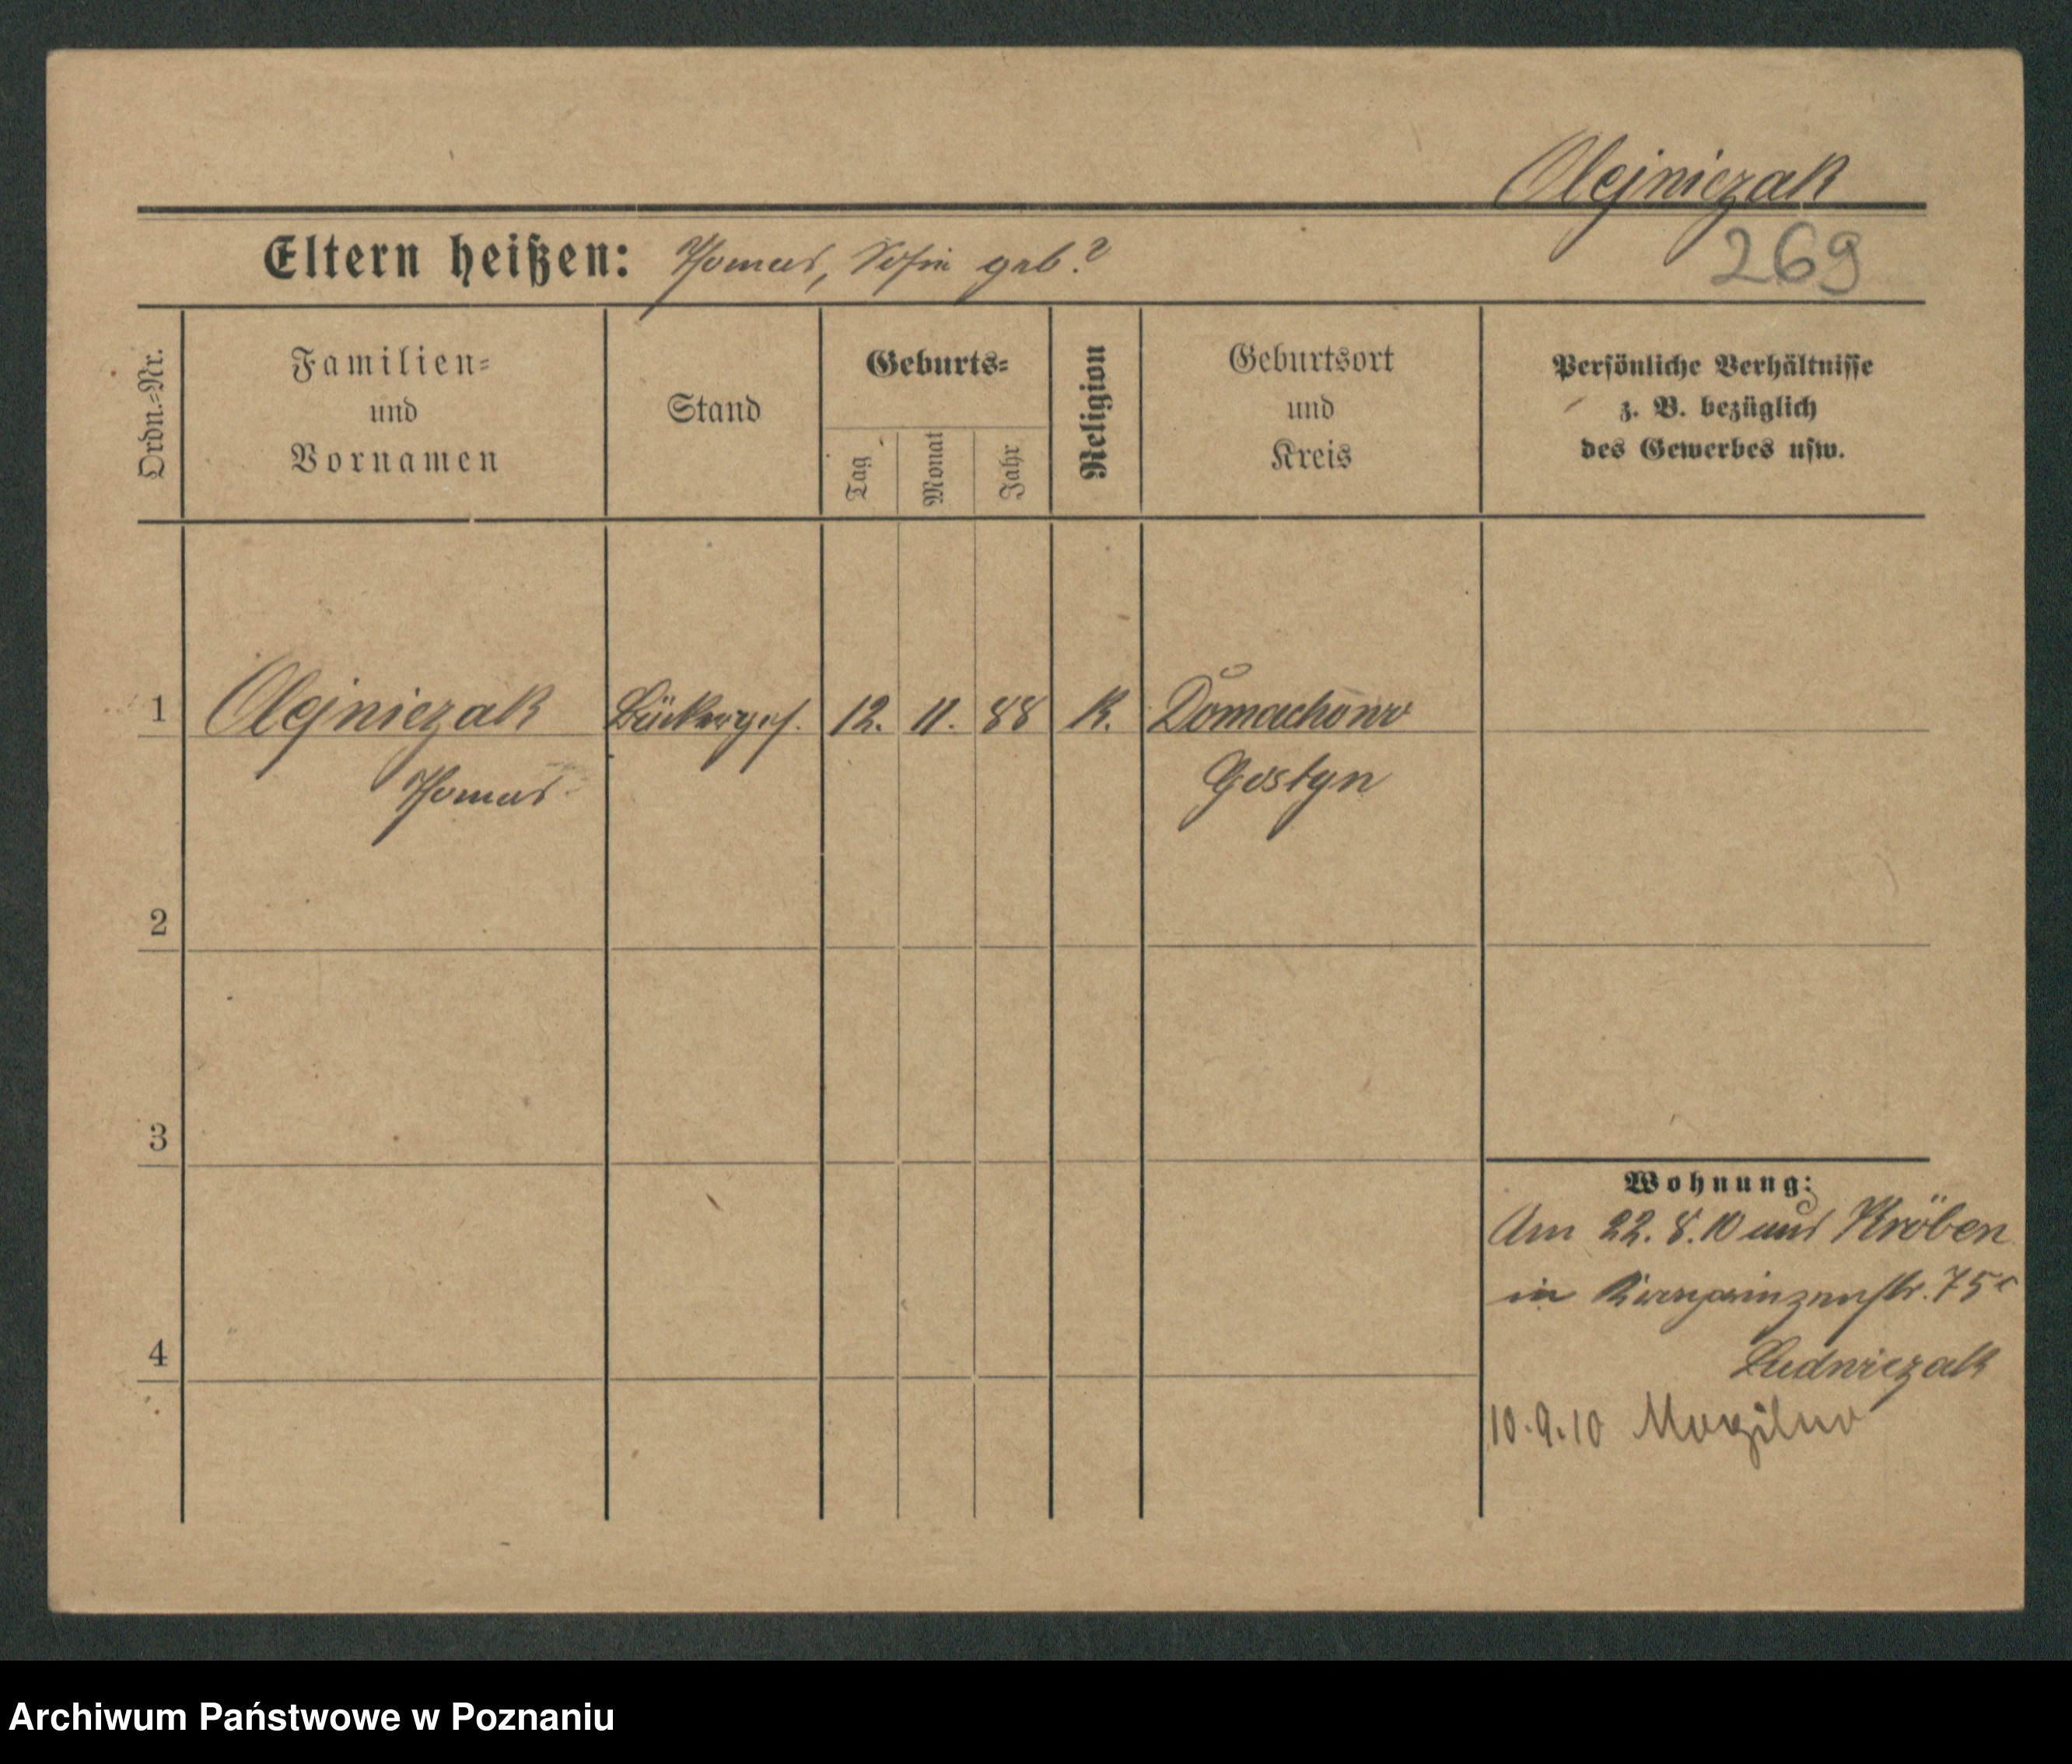 Olejniczak
Eltern heißen: Thomas, Sofie geb.?
269
Ordn.=Nr.
Familien=
und
Vornamen
Stand
Geburts=
Tag
Monat
Jahr
Religion
Geburtsort
und
Kreis
Persönliche Verhältnisse
z. B. bezüglich
des Gewerbes usw.
1 Olejniczak Bäckerges. 12. 11. 88 K. Domachowo
Thomas Gostyn
2
3
Wohnung:
Am 22. 8. 10 aus Kröben
in Kronprinzenstr. 75c
4
Ludwiczak
10.9.10 Mogilno
Archiwum Państwowe w Poznaniu